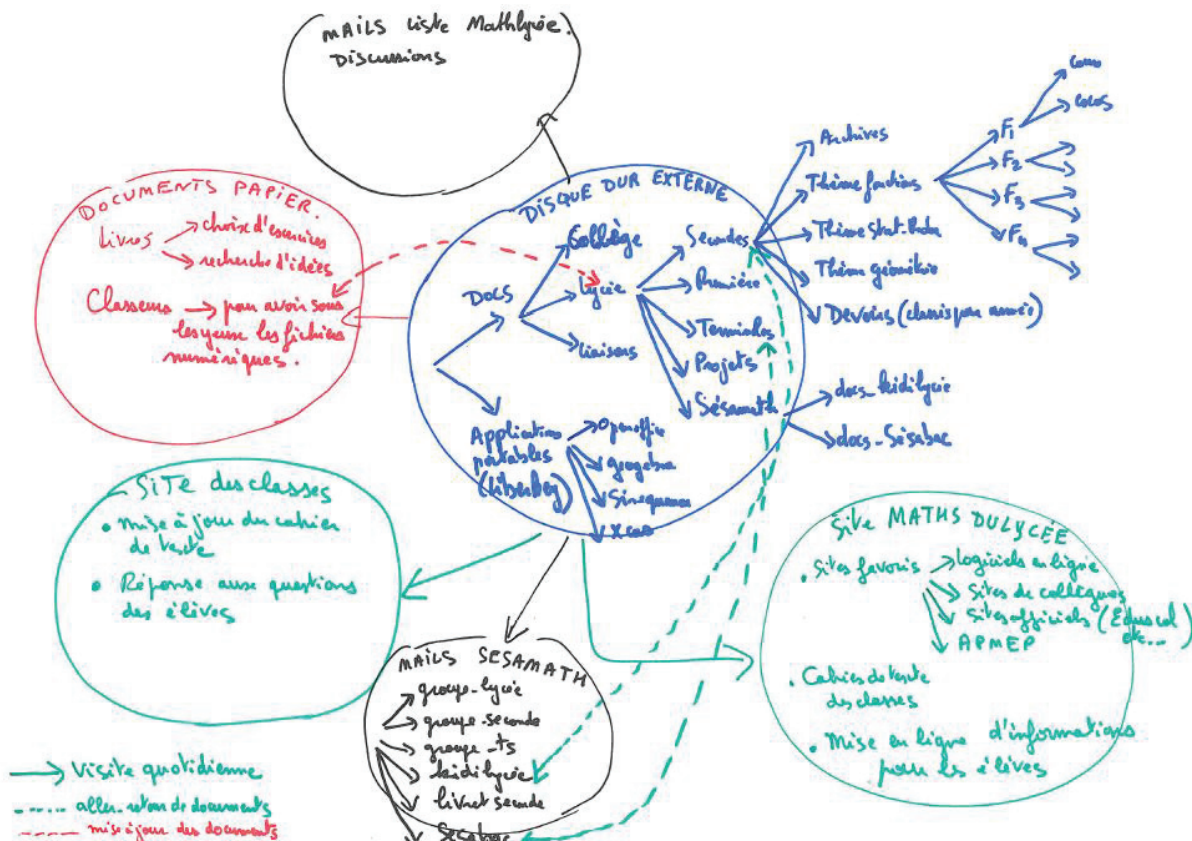 MAILS liste Mathlycée.
Discussions
DOCUMENTS PAPIER.
Livres
choix d'exercices
recherche d'idées
Classeurs
pour avoir sous
les yeux les fichiers
numériques.
DISQUE DUR EXTERNE
DOCS
Collège
Lycée
liaisons
Secondes
Première
Terminales
Projets
Sésamath
Archives
Thème fonctions
Thème Stat-Proba
Thème géométrie
Devoirs (classés par année)
F1
F2
F3
F4
cours
docs_kidilycée
docs_Sésabac
Applications
portables
(liberkey)
Openoffice
geogebra
Sinequanon
Xcas
SITE des classes
• Mise à jour du cahier
de texte
• Réponse aux questions
des élèves
MAILS SESAMATH
groupe_lycée
groupe_seconde
groupe_ts
kidilycée
livret seconde
Sesabac
Site MATHS DU LYCÉE
• Sites favoris
Logiciels en ligne
Sites de collègues
Sites officiels (Eduscol
etc...
APMEP
• Cahiers de texte
des classes
• Mise en ligne d'informations
pour les élèves
Visite quotidienne
aller-retour de documents
mise à jour des documents